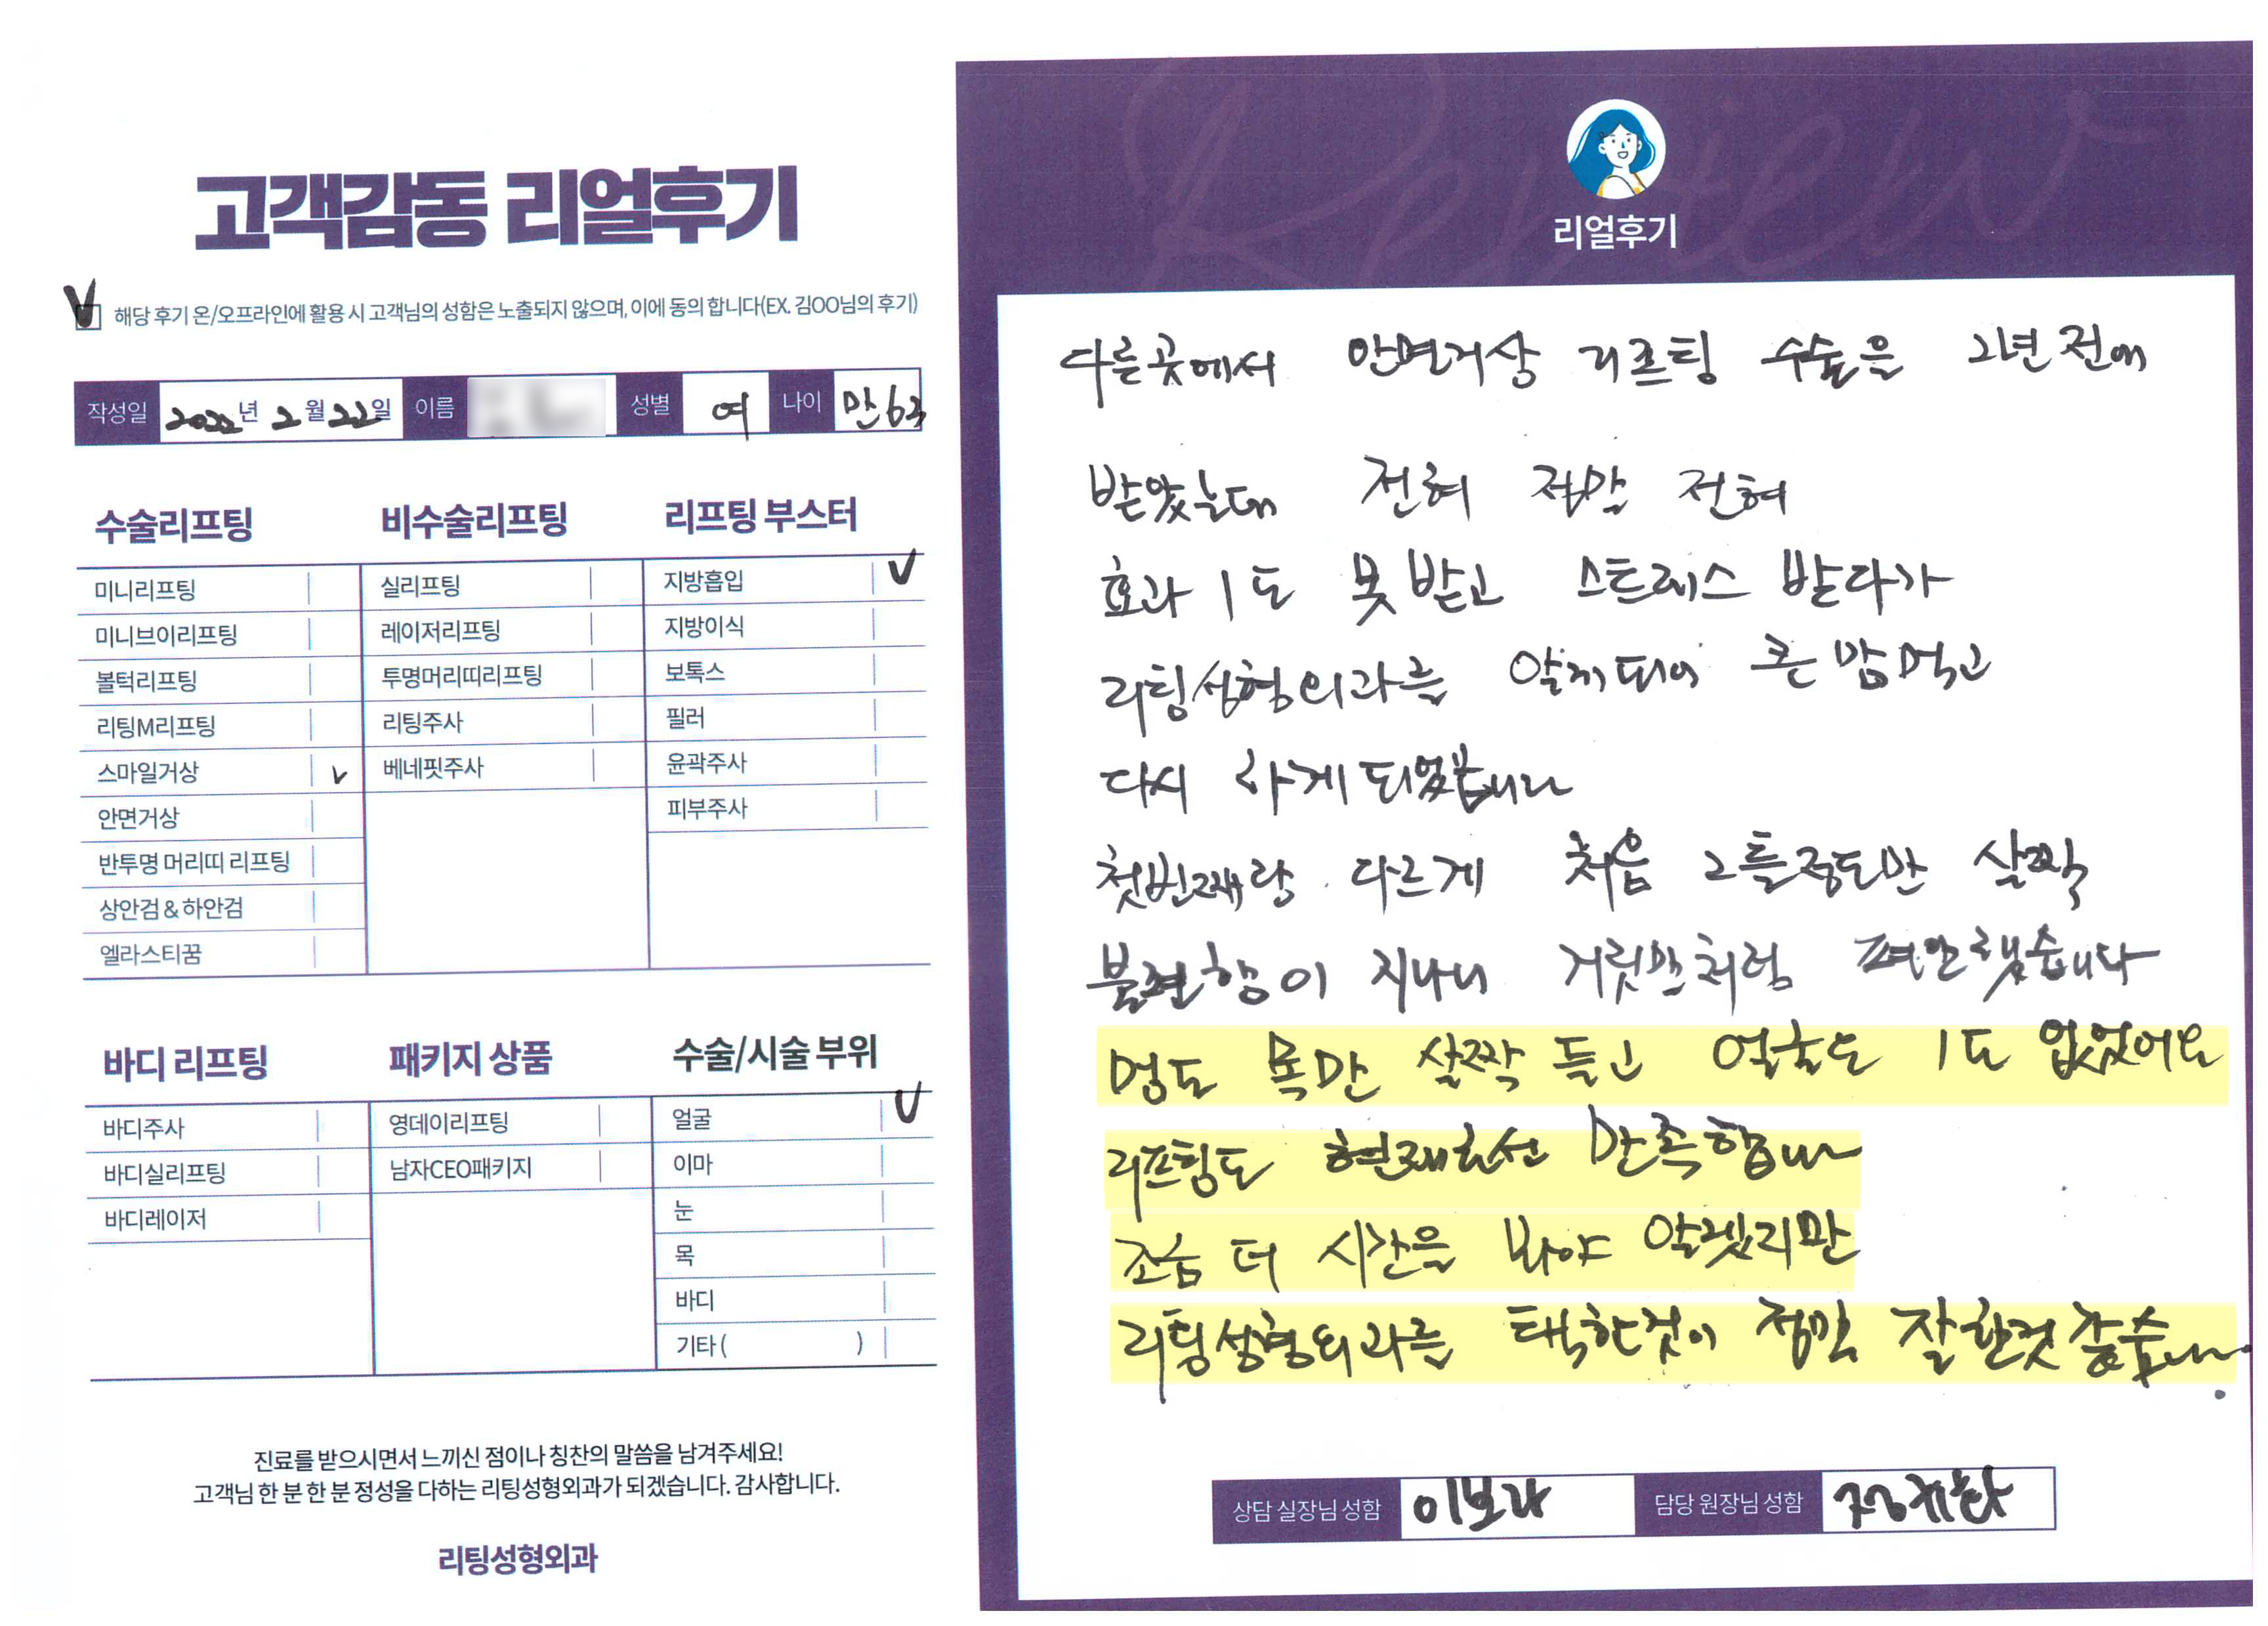 고객감동 리얼후기
해당 후기 온/오프라인에 활용 시 고객님의 성함은 노출되지 않으며, 이에 동의 합니다(EX. 김OO님의 후기)
작성일 2022년 2월 22일 이름 성별 여 나이 만63
수술리프팅
미니리프팅
미니브이리프팅
볼턱리프팅
리팅M리프팅
스마일거상
안면거상
반투명 머리띠 리프팅
상안검 & 하안검
엘라스티꿈
비수술리프팅
실리프팅
레이저리프팅
투명머리띠리프팅
리팅주사
베네핏주사
리프팅 부스터
지방흡입
지방이식
보톡스
필러
윤곽주사
피부주사
바디 리프팅
바디주사
바디실리프팅
바디레이저
패키지 상품
영데이리프팅
남자CEO패키지
수술/시술 부위
얼굴
이마
눈
목
바디
기타 ( )
진료를 받으시면서 느끼신 점이나 칭찬의 말씀을 남겨주세요!
고객님 한 분 한 분 정성을 다하는 리팅성형외과가 되겠습니다. 감사합니다.
리팅성형외과
Review
리얼후기
다른곳에서 안면거상 리프팅 수술을 2년전에
받았는데 전혀 정말 전혀
효과 1도 못받고 스트레스 받다가
리팅성형외과를 알게되어 큰맘먹고
다시 하게되었습니다
첫번째랑 다르게 처음 2틀정도만 살짝
불편함이 지나니 거짓말처럼 편안했습니다
멍도 목만 살짝 들고 얼굴은 1도 없었어요
리프팅도 현재로선 만족합니다
조금 더 시간을 봐야 알겠지만
리팅성형외과를 택한것이 정말 잘한것 같습니다.
상담 실장님 성함 이보라 담당 원장님 성함